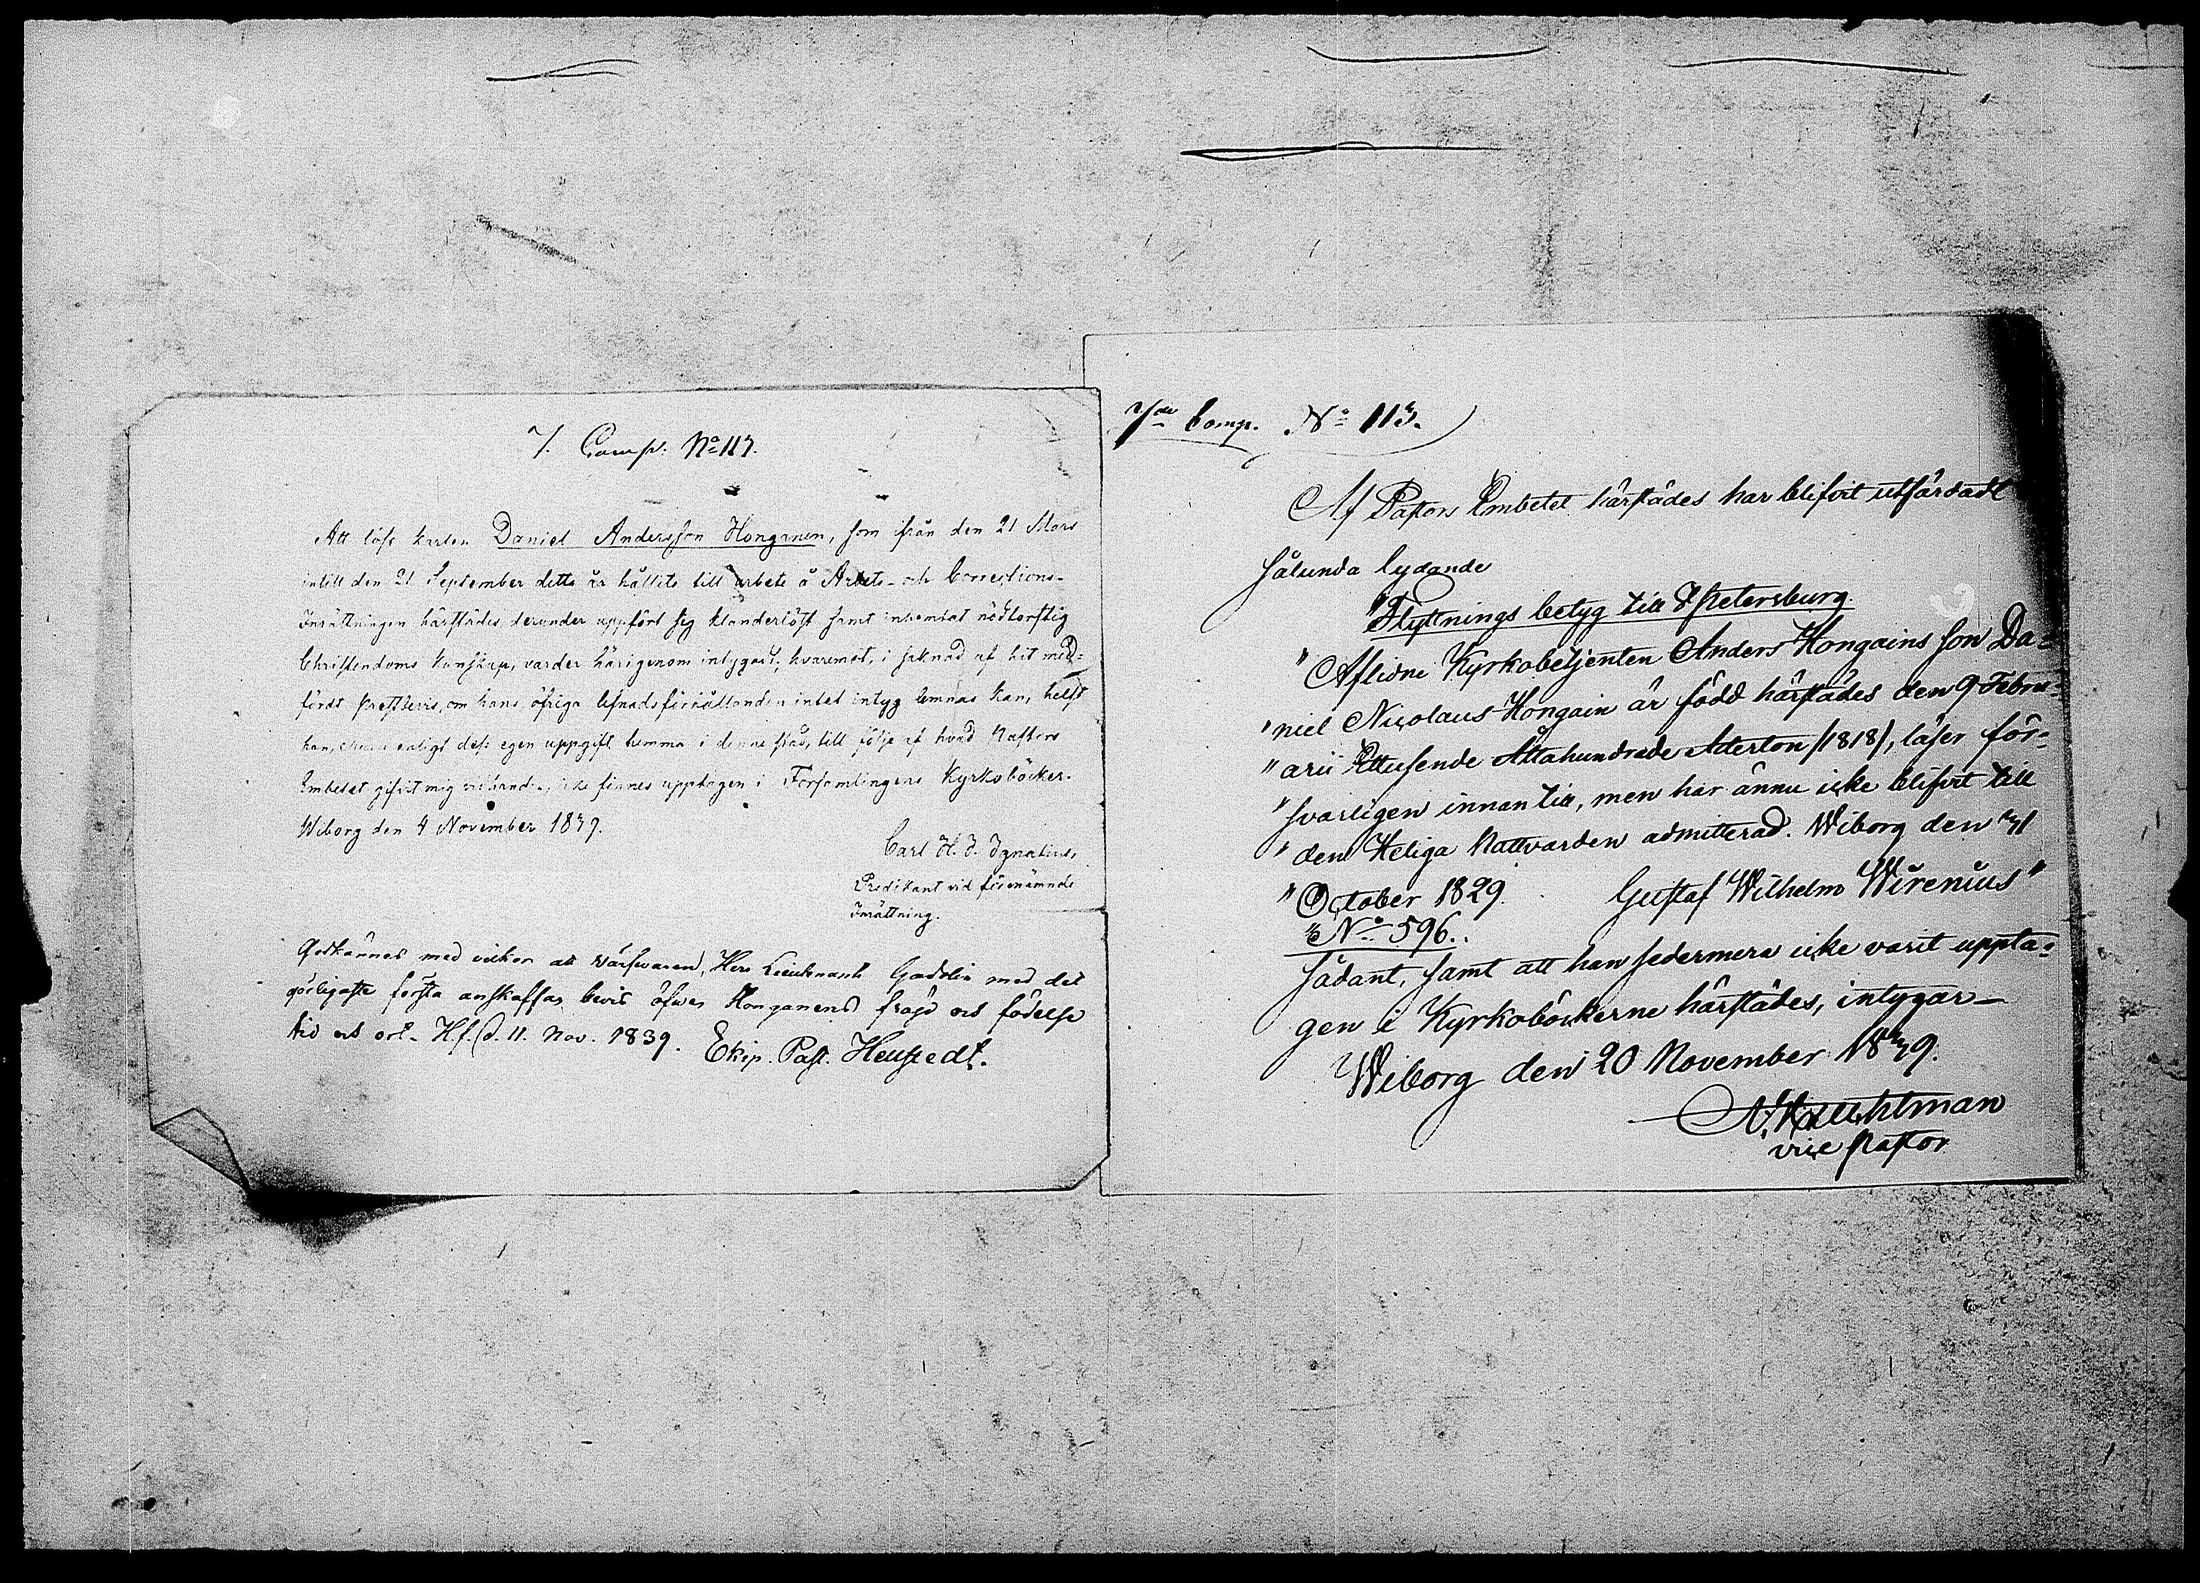 7. Comp. No 113.
Att löse karlen Daniel Andersson Honganen, som ifrån den 21 Mars
intill den 21 September detta år hållits till arbete å Arbets- och Corrections-
Inrättningen härstädes, derunder uppfört sig klanderlöst samt inhemtat nödtorftig
Christendoms kunskap, varder härigenom intygadt; hvaremot, i saknad af hit med-
fördt prestbevis, om hans öfriga lefnadsförhållanden intet intyg lemnas kan, helst
han, enligt dess egen uppgift hemma i denne stad, till följe af hvad Pastors
Embetet gifvit mig vid handen, icke finnes upptagen i Församlingens Kyrkoböcker.
Wiborg den 4 November 1839.
Carl H. J. Ignatius,
Predikant vid förenämnde
Inrättning.
Godkännes med vilkor att värfvaren, Herr Lieutenant Gadolin med det
görligaste första anskaffar bevis öfver Honganens frejd och födelse
tid och ort. H.f. d. 11. Nov. 1839. Ekip. Past. Heustedt.
7de Comp. No 113.
Af Pastors Embetet härstädes har blifvit utfärdadt
sålunda lydande
"Flyttnings betyg till St Petersburg.
"Aflidne Kyrkobetjenten Anders Hongains son Da=
"niel Nicolaus Hongain är född härstädes den 9 Febru=
"arii Ettusende Åttahundrade Aderton /1818/, läser för=
"svarligen innan till, men har ännu icke blifvit till
"den Heliga Nattvarden admitterad. Wiborg den 31
"October 1829. Gustaf Wilhelm Wirenius"
"No 596.
Sådant, samt att han sedermera icke varit uppta=
gen i Kyrkoböckerne härstädes, intygar
Wiborg den 20 November 1839.
vice Pastor